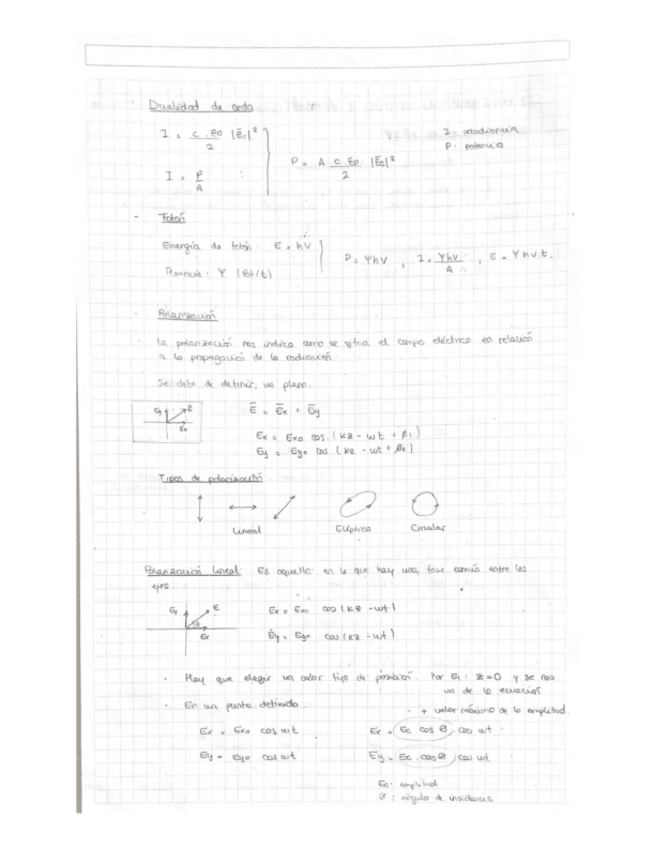 Dualidad de onda
I = c·ε0/2 |Ē0|²
I: irradiancia
P: potencia
P = A c·ε0/2 |Ē0|²
I = P/A
- Fotón
Energía de fotón: E = hν
P = Ψhν , I = Ψhν/A , E = Ψhν·t.
Ψ (fot/t)
Polarización
La polarización nos indica como se sitúa el campo eléctrico en relación
a la propagación de la radiación.
Se debe de definir, un plano.
Ey E
Ex
Ē = Ēx + Ēy
Ex = Ex0 cos (kz - wt + ϕ1)
Ey = Ey0 cos (kz - wt + ϕ2)
Tipos de polarización
Lineal Elíptica Circular
Polarización Lineal: Es aquella en la que hay una fase común entre los
ejes.
Ey E
Ex
Ex = Ex0 cos (kz - wt)
Ey = Ey0 cos (kz - wt)
· Hay que elegir un valor tipo de posición. Por Ej: z=0 y se nos
va de la ecuación
· En un punto definido
+ valor máximo de la amplitud.
Ex = Ex0 cos wt
Ex = Eo cos θ cos wt
Ey = Ey0 cos wt
Ey = Eo cos θ cos wt
Eo: amplitud
θ: ángulo de incidencia